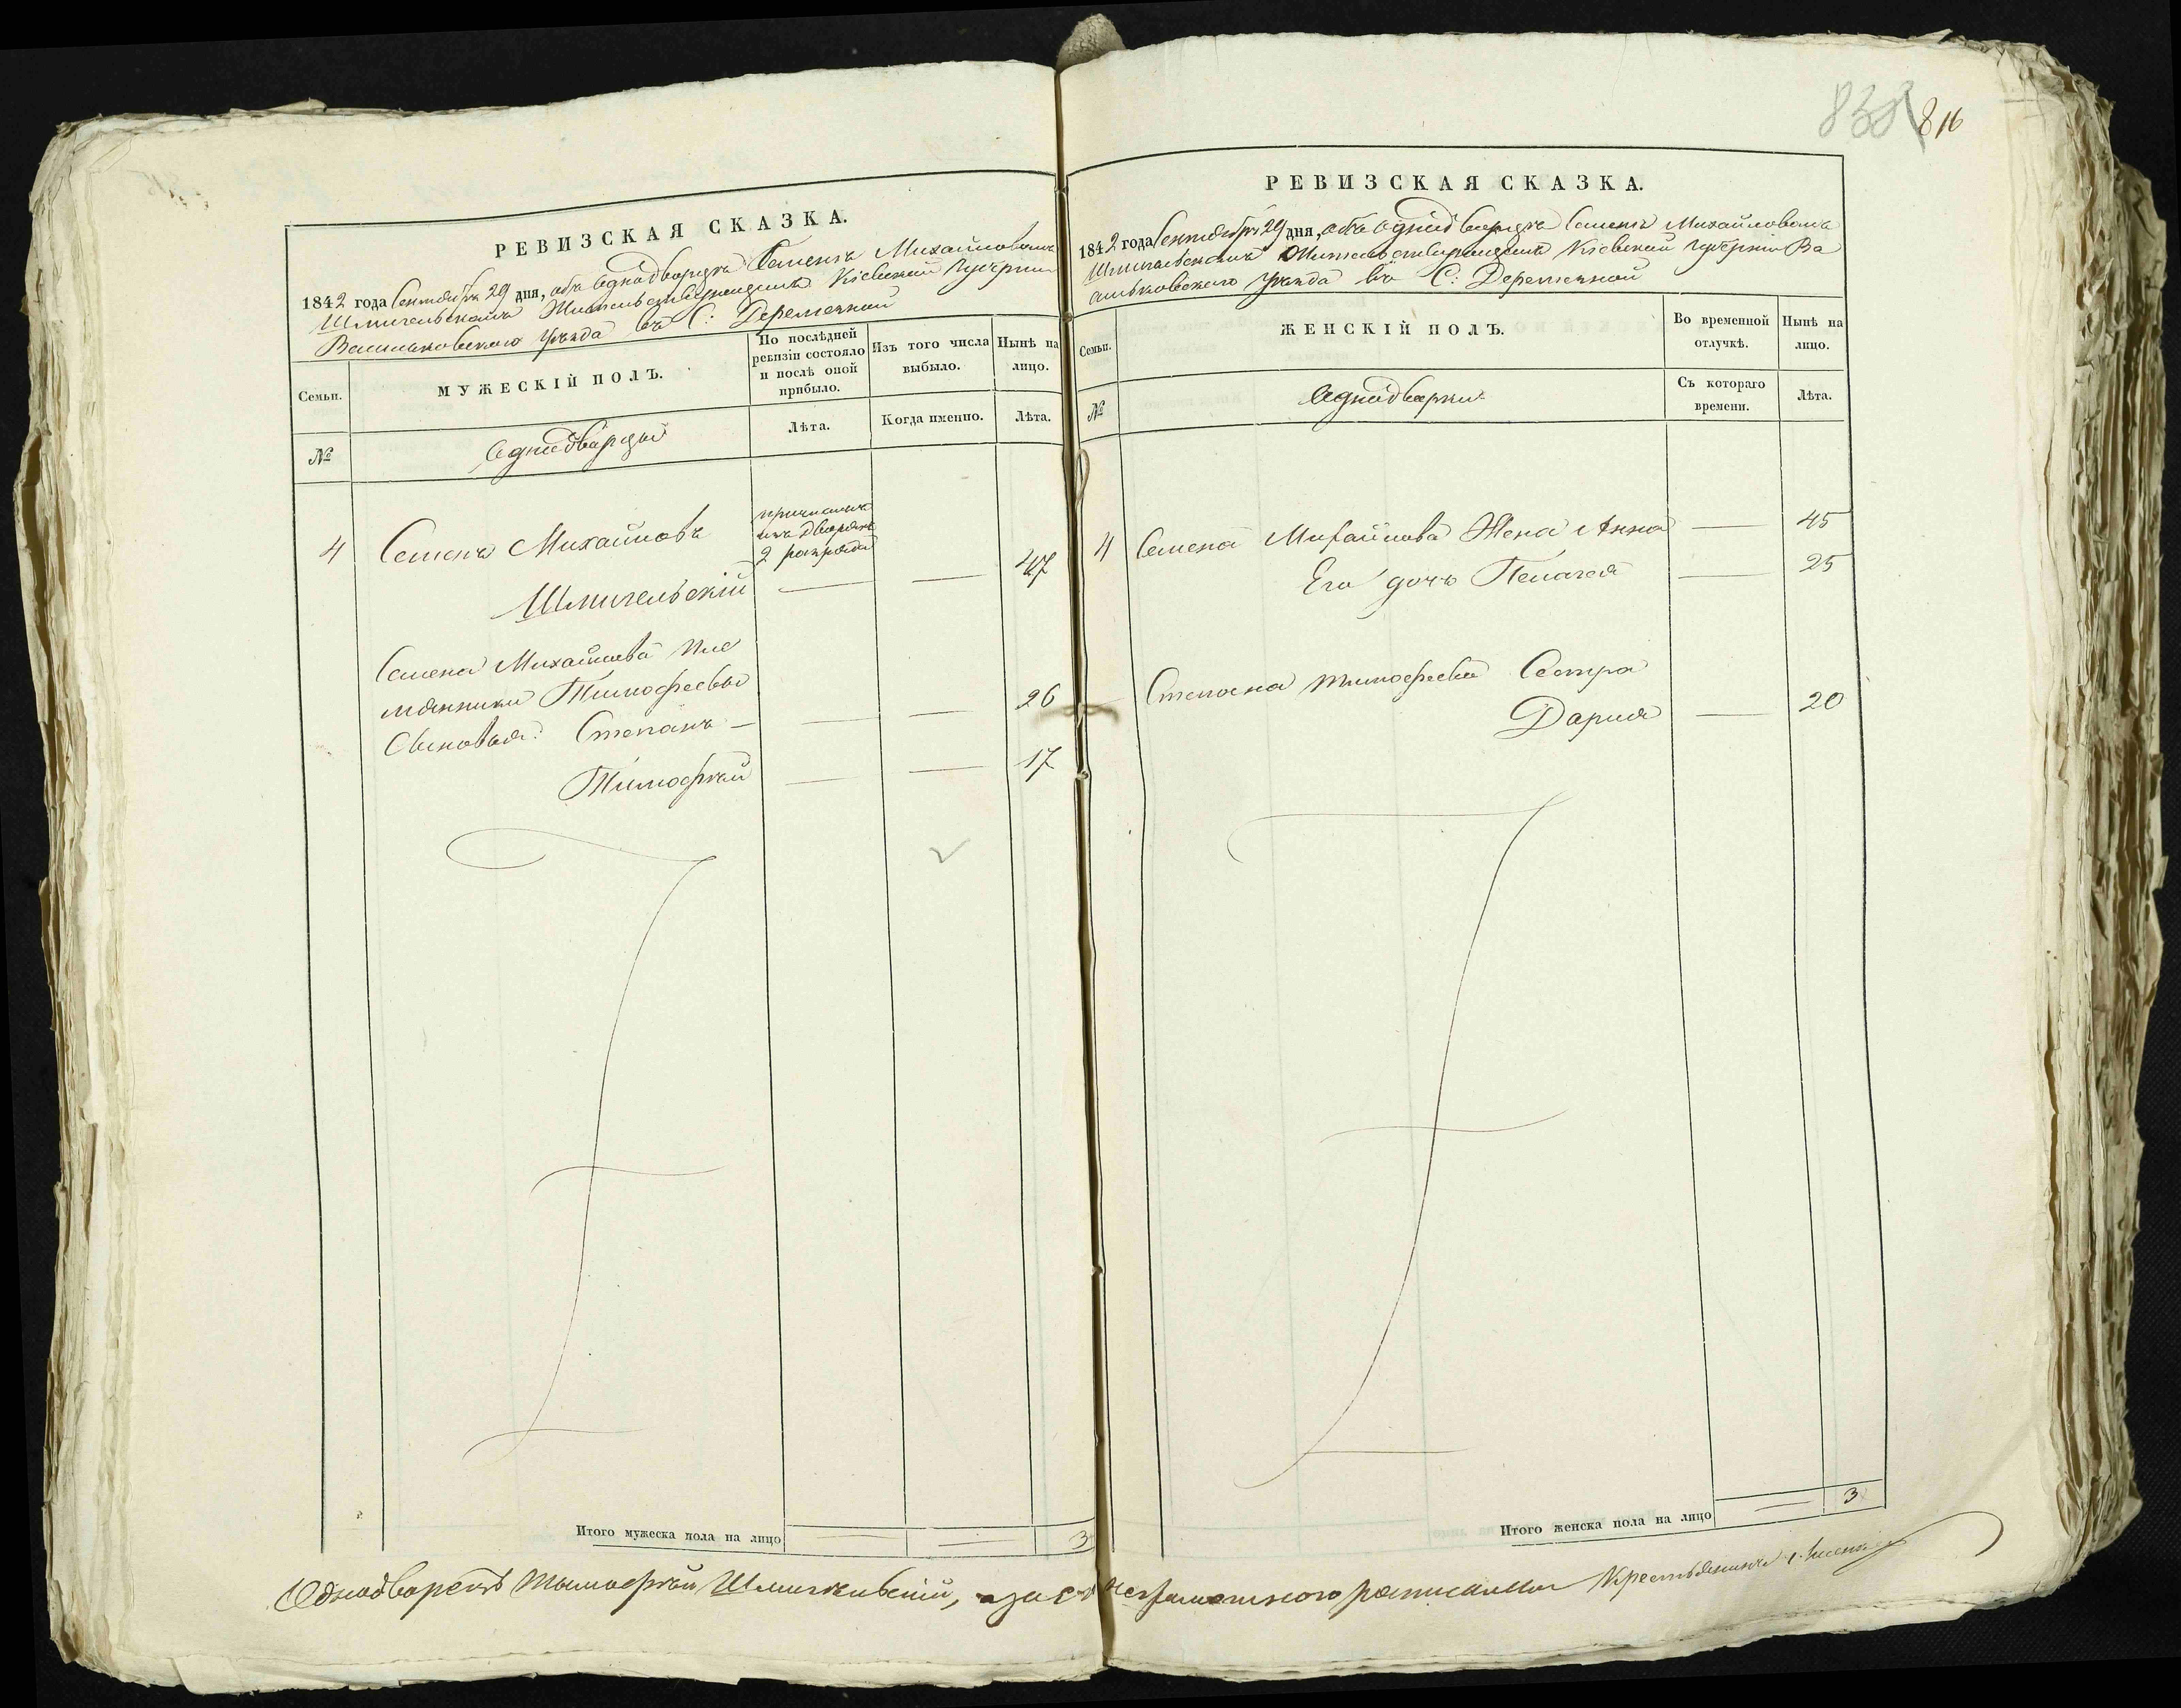 838 816
РЕВИЗСКАЯ СКАЗКА.
1842 года Сентября 29 дня, объ однодворцѣ Семенѣ Михайловомъ
Шмигельскомъ Жительствующемъ Кіевской Губерніи
Васильковскаго уѣзда въ С: Деремезной
Семьи.
МУЖЕСКІЙ ПОЛЪ.
По послѣдней ревизіи состояло и послѣ оной прибыло.
Изъ того числа выбыло.
Нынѣ на лицо.
№
Однодворцы
Лѣта.
Когда именно.
Лѣта.
4 Семенъ Михайловъ
причисленъ
изъ дворянъ
2 разряда
Шмигельскій — — 47
Семена Михайлова пле
мянники Тимофеевы
Сыновья: Степанъ — — — 26
Тимофѣй — — 17
Итого мужеска пола на лицо 3
РЕВИЗСКАЯ СКАЗКА.
1842 года Сентября 29 дня, объ однодворцѣ Семенѣ Михайловомъ
Шмигельскомъ Жительствующемъ Кіевской Губерніи Ва
сильковскаго уѣзда въ С: Деремезной
Семьи.
ЖЕНСКІЙ ПОЛЪ.
Во временной отлучкѣ.
Нынѣ на лицо.
№
Однодворки
Съ котораго времени.
Лѣта.
4 Семена Михайлова Жена Анна — 45
Его дочь Пелагея — 25
Степана Тимофеева Сестра
Дария — 20
Итого женска пола на лицо 3
Однодворецъ Тымофѣй Шмигельскій, а за его неграмотного росписался Крестьянинъ